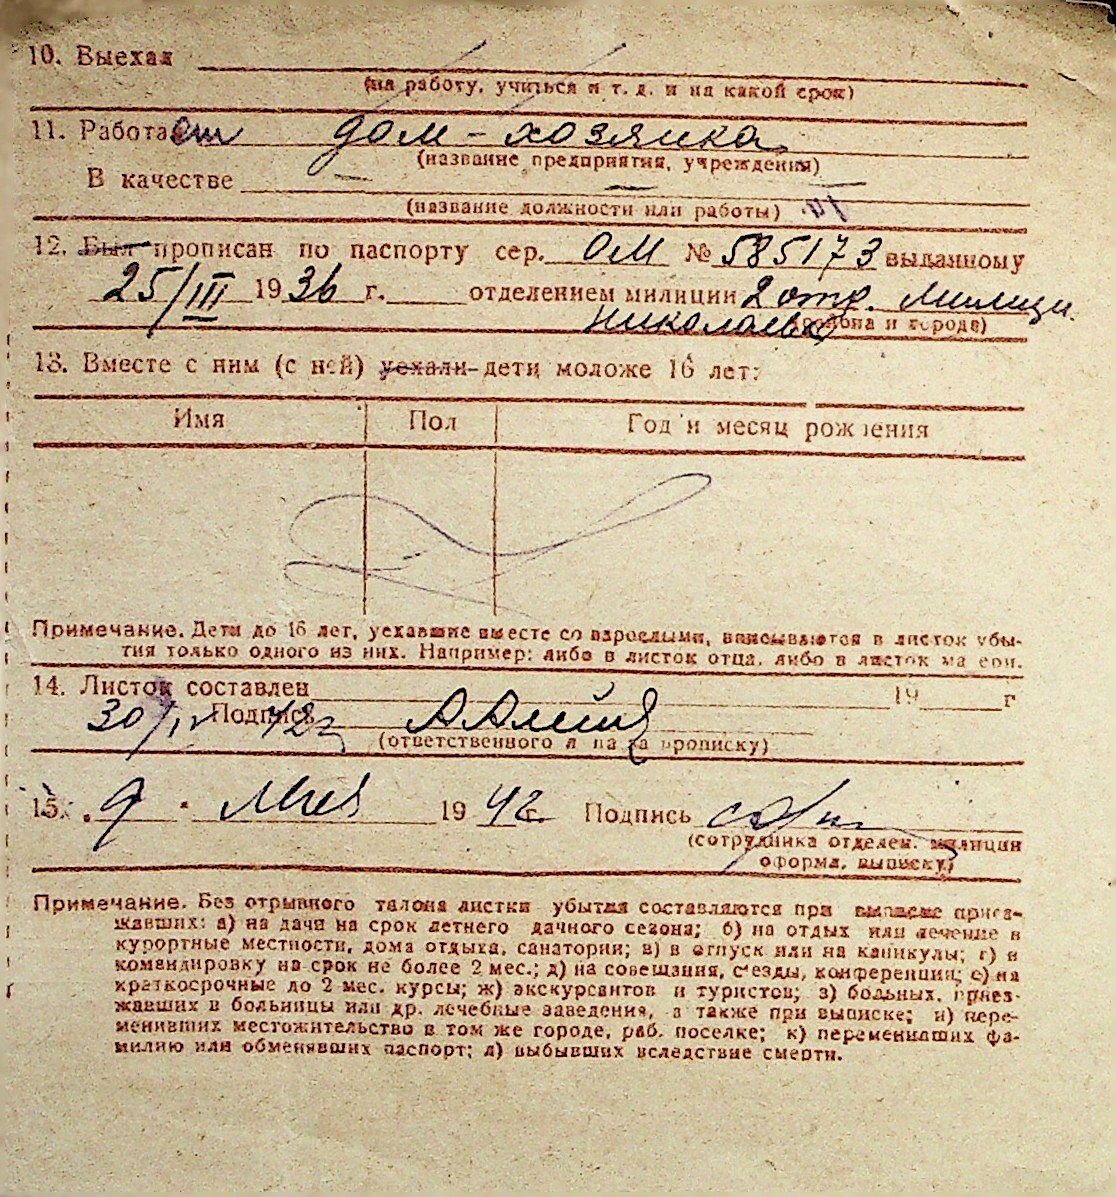 10. Выехал
(на работу, учиться и т. д. и на какой срок)
11. Работает дом-хозяйка
(название предприятия, учреждения)
В качестве
(название должности или работы)
12. Был прописан по паспорту сер. ОМ № 585173 выданному
25/III 1936 г. отделением милиции 2 отд. Милиции
Николаева (района и города)
13. Вместе с ним (с ней) уехали дети моложе 16 лет:
Имя Пол Год и месяц рождения
Примечание. Дети до 16 лет, уехавшие вместе со взрослыми, вписываются в листок убы-
тия только одного из них. Например: либо в листок отца, либо в листок матери.
14. Листок составлен 19 г
30/IV 42 г Подпись
(ответственного лица за прописку)
15. 9 Мая 1942 г. Подпись
(сотрудника отделен. милиции
оформл. выписку)
Примечание. Без отрывного талона листки убытия составляются при выписке приез-
жавших: а) на дачи на срок летнего дачного сезона; б) на отдых или лечение в
курортные местности, дома отдыха, санатории; в) в отпуск или на каникулы; г) в
командировку на срок не более 2 мес.; д) на совещания, съезды, конференции; е) на
краткосрочные до 2 мес. курсы; ж) экскурсантов и туристов; з) больных, приез-
жавших в больницы или др. лечебные заведения, а также при выписке; и) пере-
менивших местожительство в том же городе, раб. поселке; к) переменивших фа-
милию или обменявших паспорт; л) выбывших вследствие смерти.